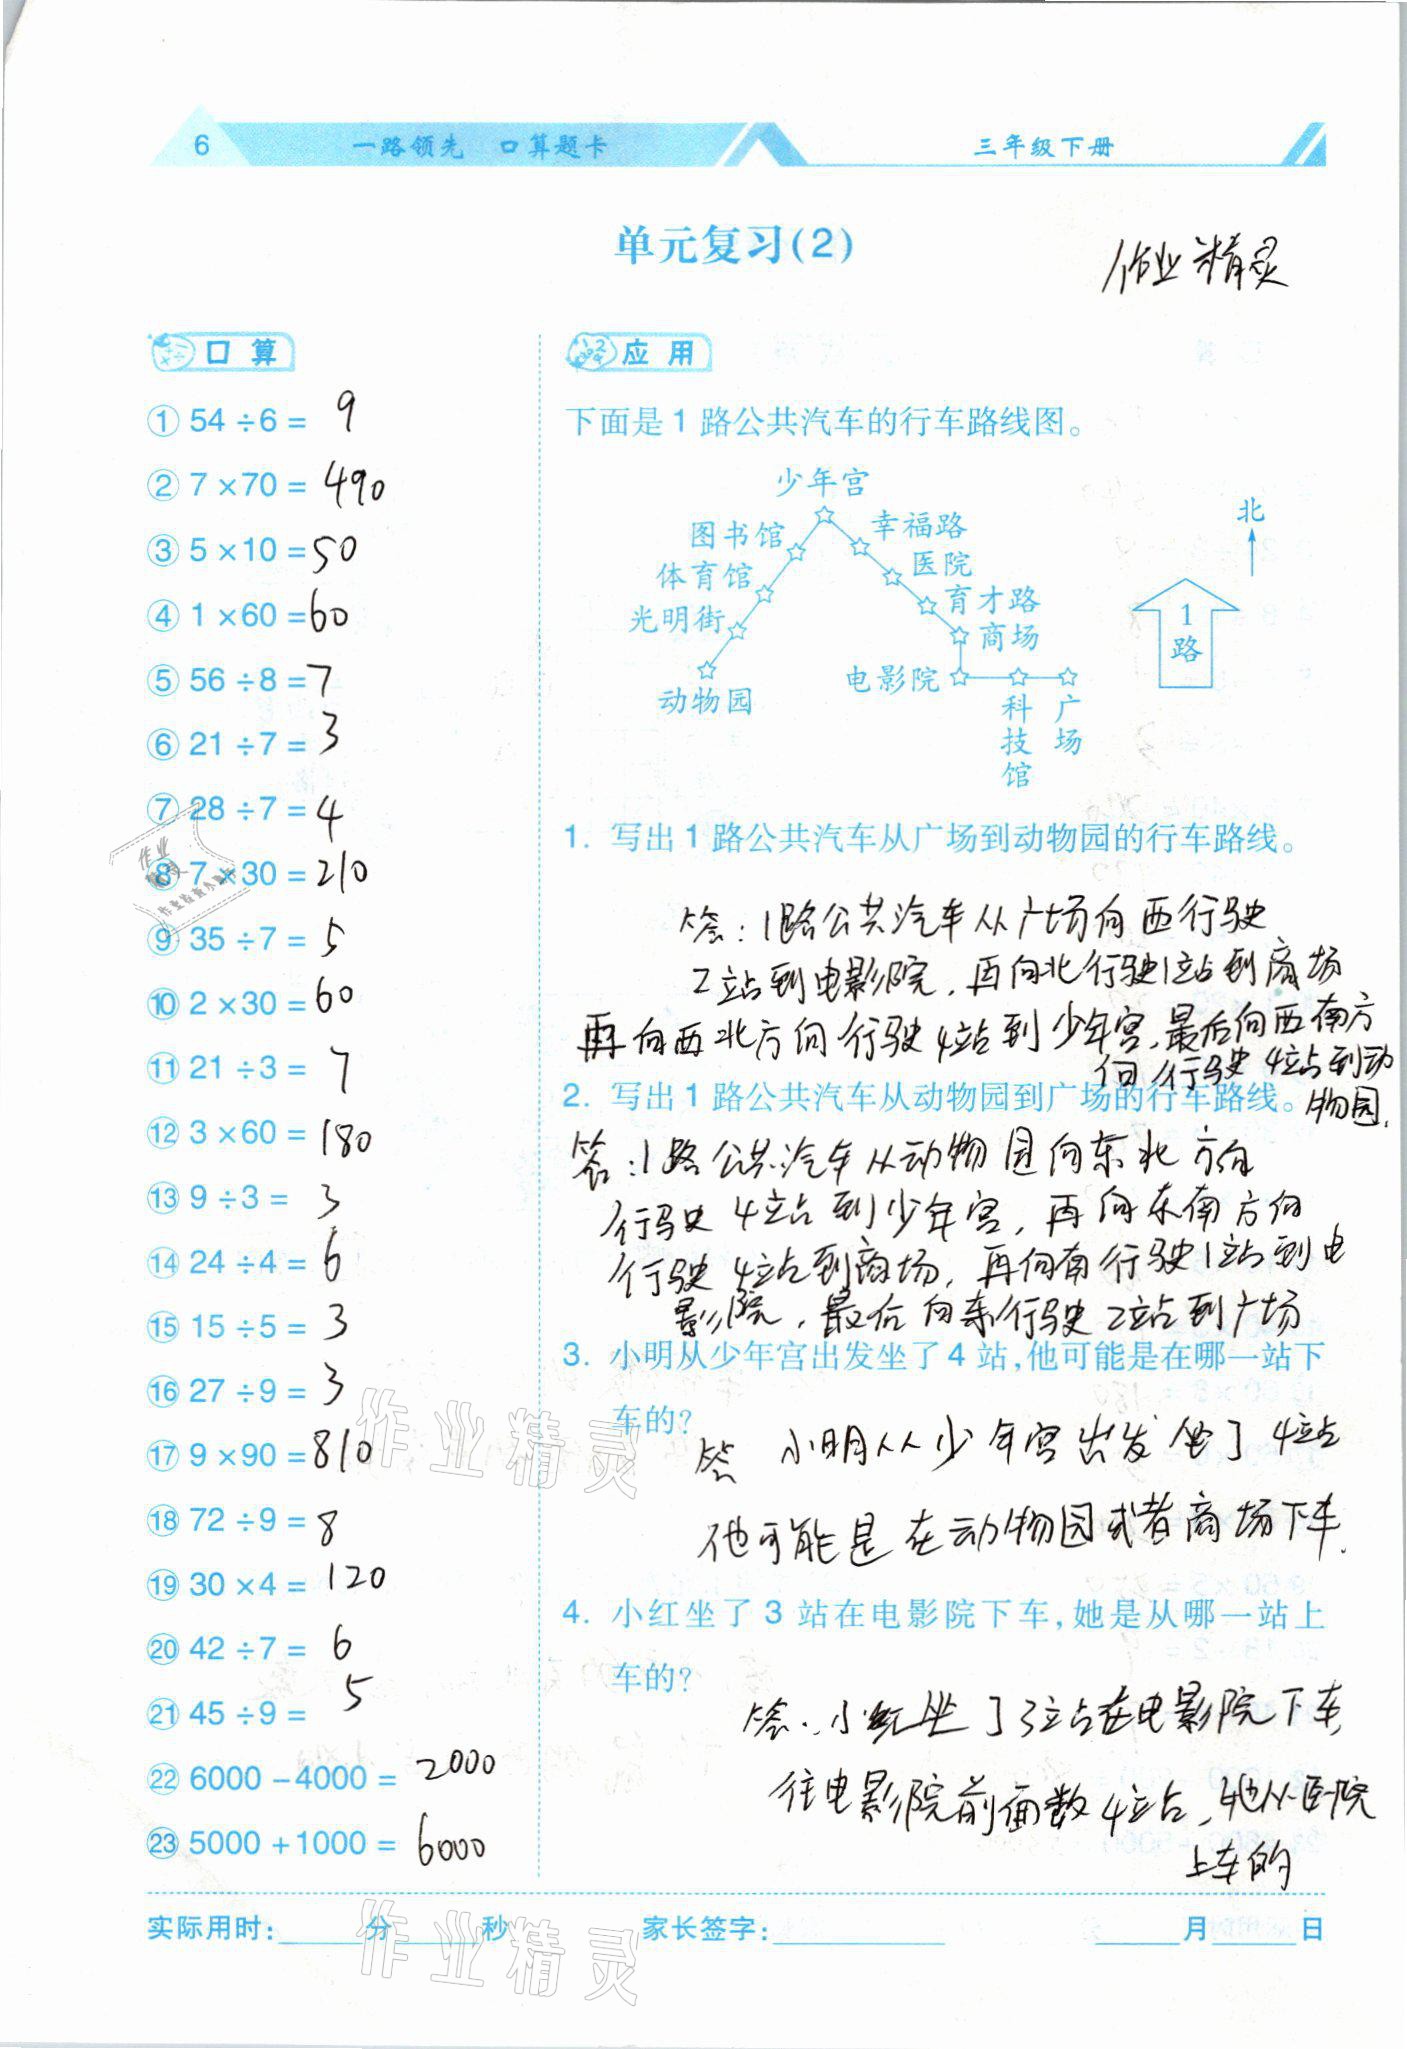 6 一路领先 口算题卡 三年级下册
单元复习(2)
作业精灵
口算
① 54÷6= 9
② 7×70= 490
③ 5×10= 50
④ 1×60= 60
⑤ 56÷8= 7
⑥ 21÷7= 3
⑦ 28÷7= 4
⑧ 7×30= 210
⑨ 35÷7= 5
⑩ 2×30= 60
⑪ 21÷3= 7
⑫ 3×60= 180
⑬ 9÷3= 3
⑭ 24÷4= 6
⑮ 15÷5= 3
⑯ 27÷9= 3
⑰ 9×90= 810
⑱ 72÷9= 8
⑲ 30×4= 120
⑳ 42÷7= 6
㉑ 45÷9= 5
㉒ 6000-4000= 2000
㉓ 5000+1000= 6000
应用
下面是1路公共汽车的行车路线图。
少年宫
图书馆 幸福路
体育馆 医院
光明街 育才路
商场
动物园 电影院
科技馆
广场
北
1路
1. 写出1路公共汽车从广场到动物园的行车路线。
答:1路公共汽车从广场向西行驶
2站到电影院,再向北行驶1站到商场
再向西北方向行驶4站到少年宫,最后向西南方
向行驶4站到动
物园.
2. 写出1路公共汽车从动物园到广场的行车路线。
答:1路公共汽车从动物园向东北方向
行驶4站到少年宫,再向东南方向
行驶4站到商场,再向南行驶1站到电
影院,最后向东行驶2站到广场
3. 小明从少年宫出发坐了4站,他可能是在哪一站下
车的?
答 小明从少年宫出发坐了4站
他可能是在动物园或者商场下车.
4. 小红坐了3站在电影院下车,她是从哪一站上
车的?
答:小红坐了3站在电影院下车,
往电影院前面数4站,她从医院
上车的
实际用时:____分____秒 家长签字:________ ____月____日
作业精灵
作业精灵